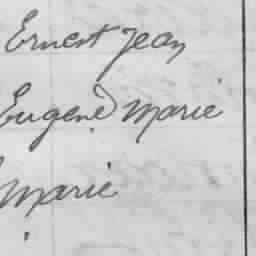 Ernest Jean
Eugène Marie
Marie